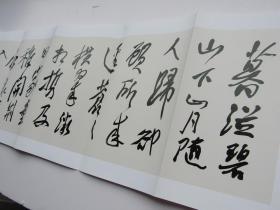 暮從碧
山下山月隨
人歸卻
顧所來
逕蒼々
橫翠微
相攜及
田家童
稚開荊